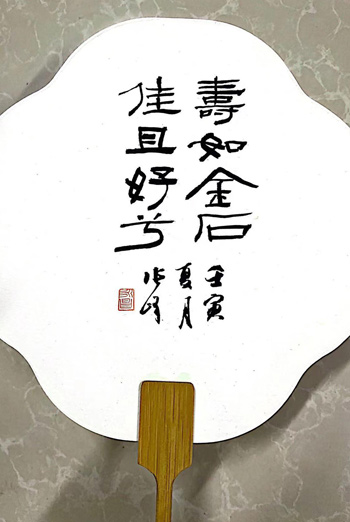 壽如金石
佳且好兮
壬寅
夏月